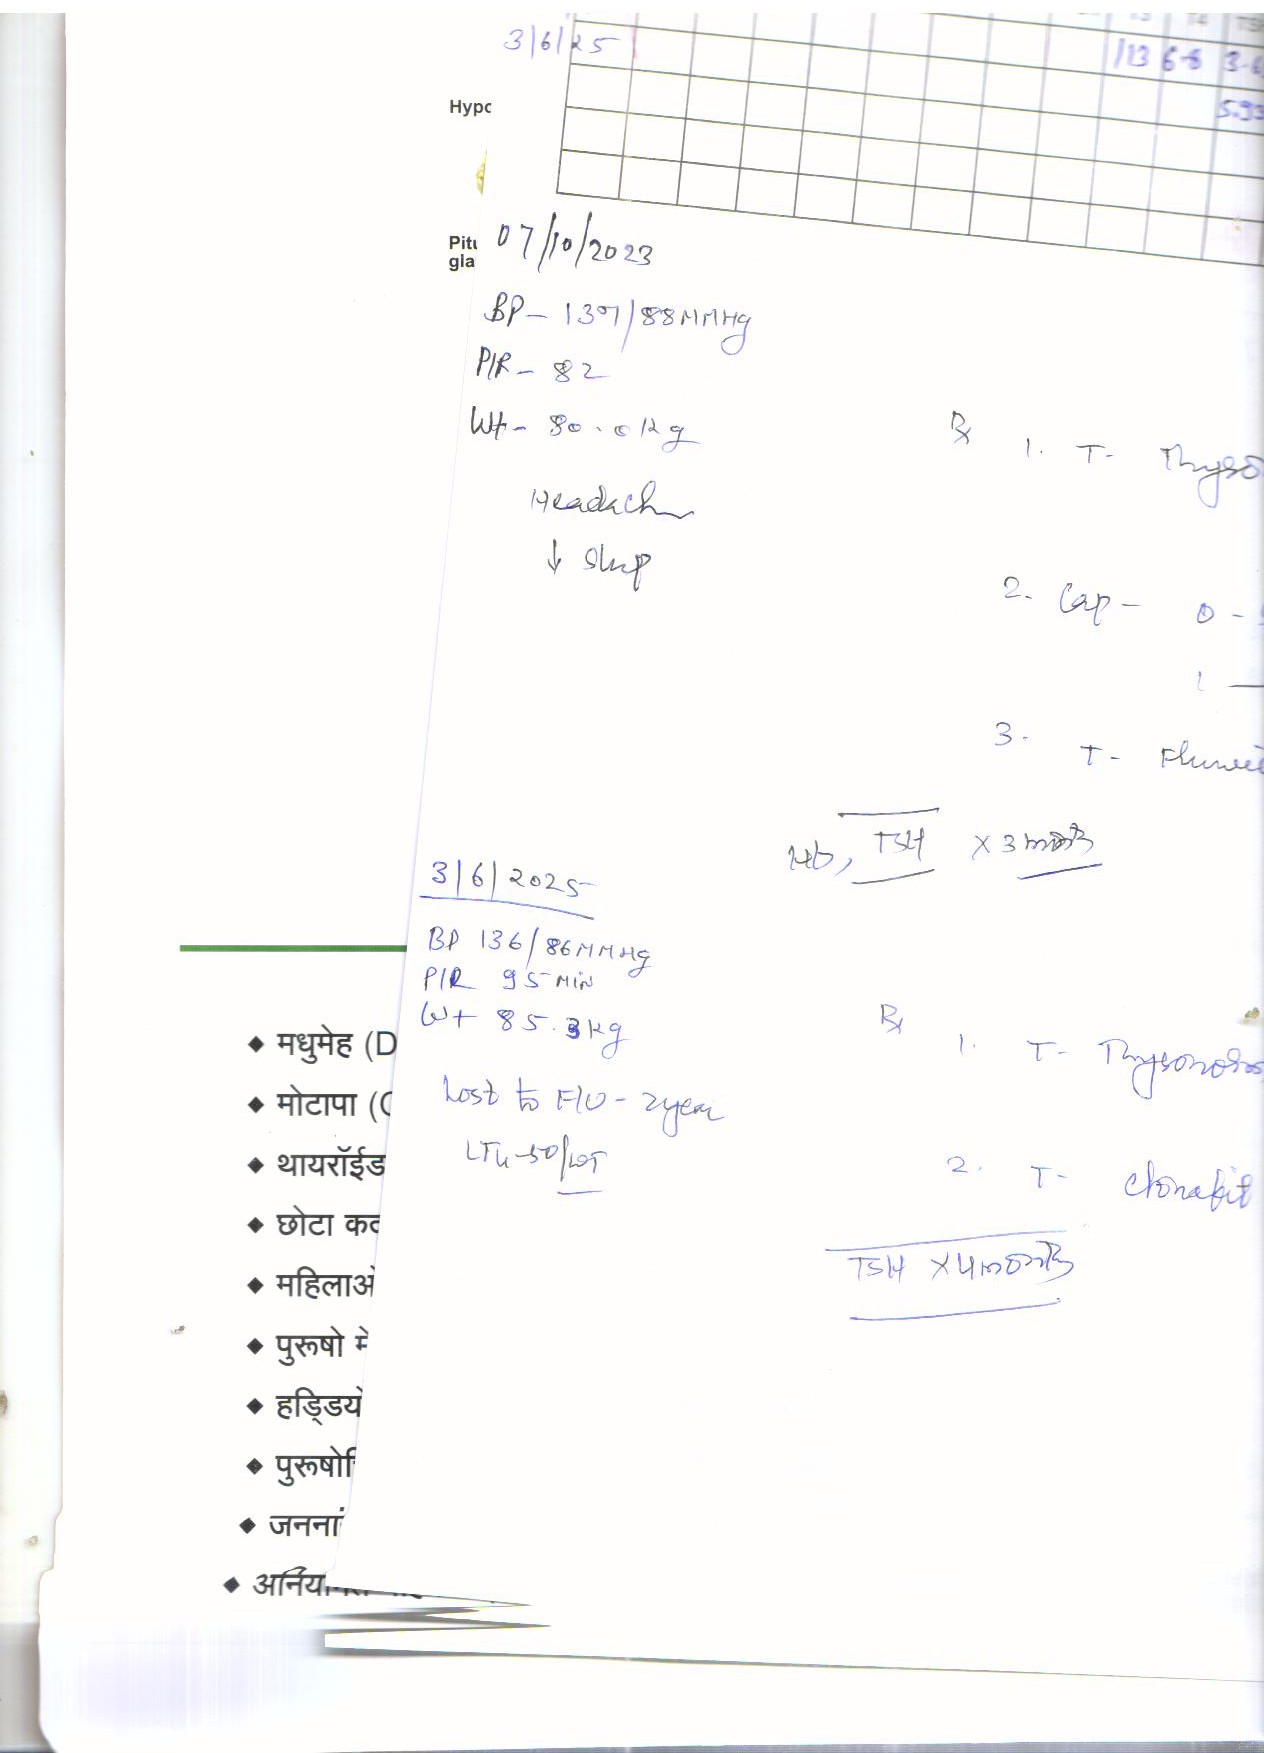 T3 T4 TSH
3/6/25 113 6.8 3.6
5.93
Hypo
Pitu
gla
07/10/2023
BP - 137/88 MMHg
P/R - 82
Wt - 80.0 Kg
Headache
↓ Sleep
Rx
1. T- Thyro
2. Cap -
1 —
3. T-
Hb, TSH x 3 months
3/6/2025
BP 136/86 MMHg
P/R 95 MIN
Wt 85.3 kg
Lost to F/U - 2 year
Rx
1. T- Thyrono
2. T- Clonafit
TSH x 4 months
◆ मधुमेह (D
◆ मोटापा (
◆ थायरॉईड
◆ छोटा कद
◆ महिलाओ
◆ पुरूषो मे
◆ हड्डियो
◆ पुरूषो
◆ जननां
◆ अनिय